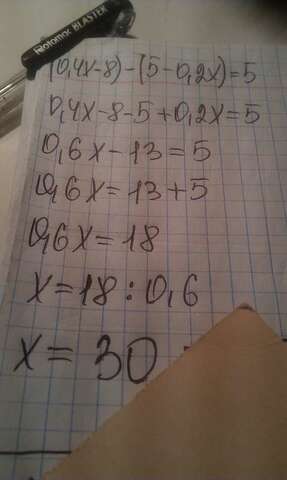 Rotomac BLASTER
(0,4x-8)-(5-0,2x)=5
0,4x-8-5+0,2x=5
0,6x-13=5
0,6x=13+5
0,6x=18
x=18:0,6
x=30